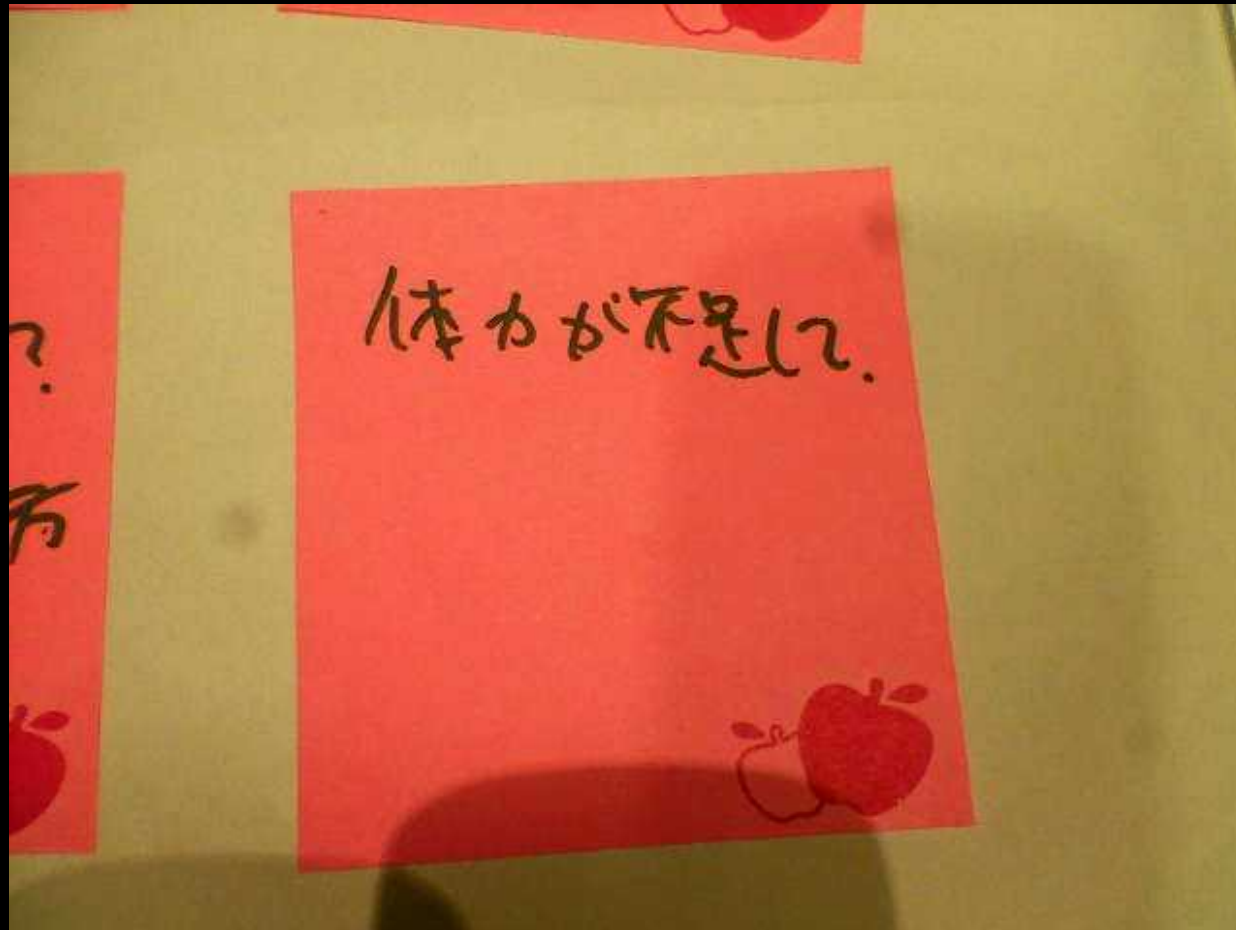 体力が不足して.
?
方